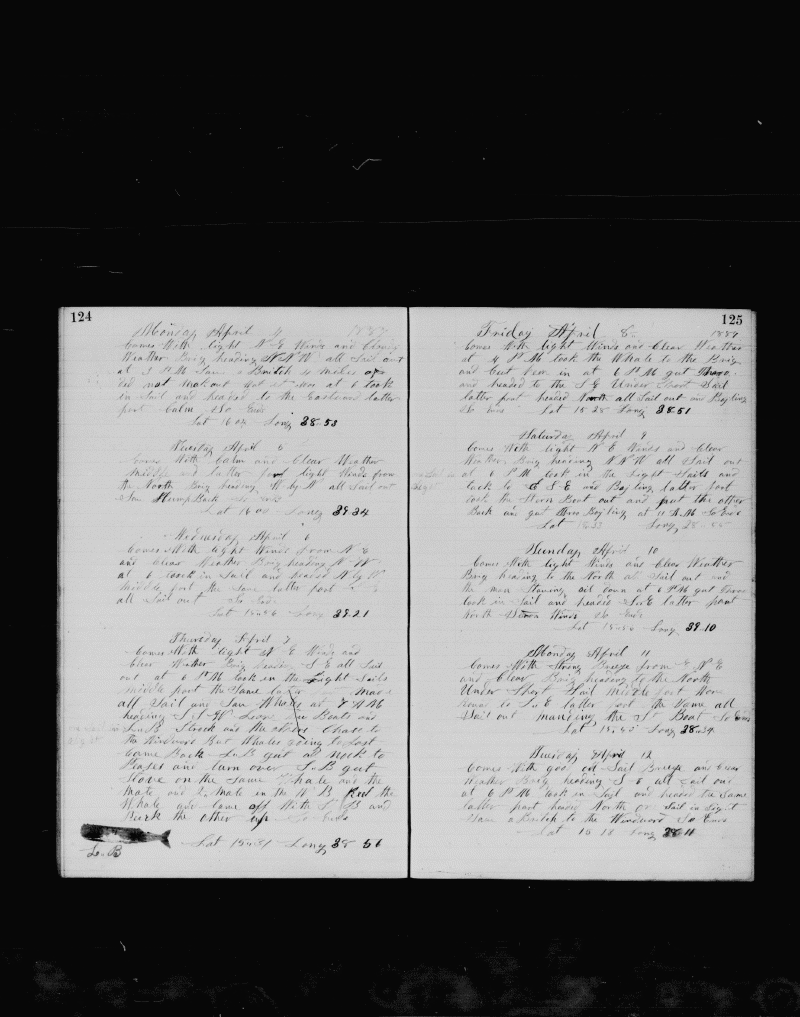 124
Monday April 4 1887
Comes With light N E Winds and Cloudy
Weather Brig heading N N W all Sail out
at 3 P M Saw a Breach 4 miles of
did not make out got at 6 took
in Sail and headed to the Eastward latter
part Calm So Ends
Lat 16 04 Long 38.53
Tuesday April 5
Comes With Calm and Clear Weather
middle and latter part light Winds from
the North Brig heading W by N all Sail out
Saw Hump Back So Ends
Lat 16 00 Long 39 34
Wednesday April 6
Comes With light Winds from N E
and Clear Weather Brig heading N W
at 6 took in Sail and headed N by W
middle part the Same latter part
all Sail out So Ends
Lat Long 39.21
Thursday April 7
Comes With light N E Winds and
Clear Weather Brig heading S E all Sail
out at 6 P M took in the Light Sails
middle part the Same latter made
all Sail and Saw Whales at 7 A M
heading S W Lowered the Boats and
L. B Struck and the others Chase to
the Windward But Whales going to fast
Came Back L. B gut a
and turn over S. B gut
Stove on the Same Whale and the
Mate and 2 Mate in the W B the
Whale and Came off With S B and
the other up So Ends
L. B
Lat 15 31 Long 38 56
125
Friday April 8 1887
Comes With light Winds and Clear Weather
at 4 P M took the Whale to the Brig
and Cut him in at 6 P M gut Threw
and headed to the S E Under Short Sail
latter part headed North all Sail out and Boyling
So Ends Lat 15 28 Long 38.51
Saturday April 9
Comes With light N E Winds and Clear
Weather Brig heading N N W all Sail out
at 6 P M took in the Light Sails and
tack to E S E and Boyling latter part
took the Stern Boat out and put the other
Back and gut threw Boyling at 11 A M So Ends
Lat Long
Sunday April 10
Comes With light Winds and Clear Weather
Brig heading to the North all Sail out and
the men Stowing oil down at 6 P M gut threw
took in Sail and headed S. E latter part
North Winds So Ends
Lat Long 39.10
Monday April 11
Comes With Strong Breeze from E N E
and Clear Brig heading to the North
Under Short Sail middle part Wore
round to S. E latter part the Same all
Sail out mending the St Boat So Ends
Lat Long 38.34
Tuesday April 12
Comes With good all Sail Breeze and Clear
Weather Brig heading S E all Sail out
at 6 P M took in Sail and headed the Same
latter part headed North a Sail in Sight
Saw a Breach to the Windward So Ends
Lat 15 18 Long 38 11